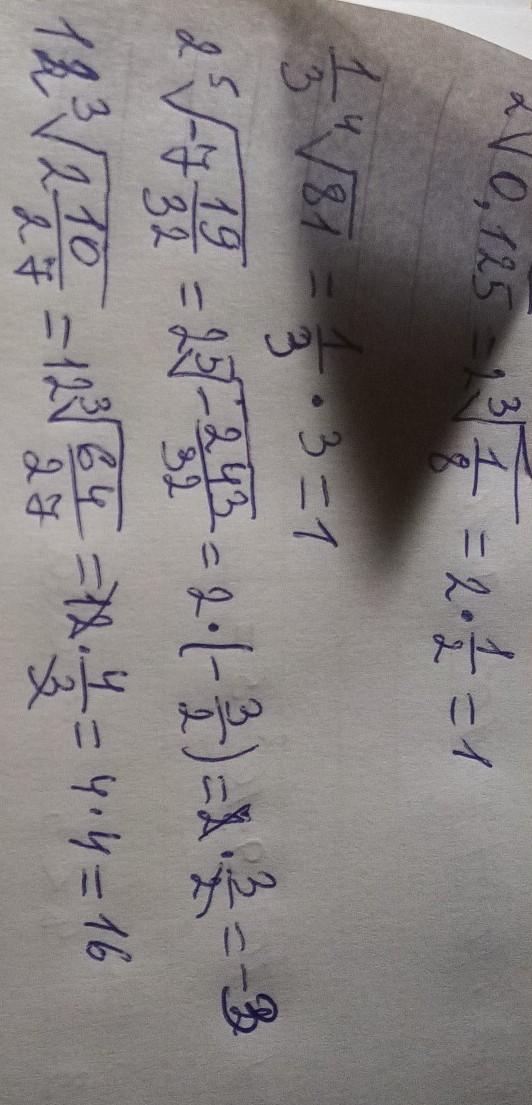 2√0,125 = 2∛(1/8) = 2·1/2 = 1
1/3 ⁴√81 = 1/3 · 3 = 1
2 ⁵√(-7 19/32) = 2 ⁵√(-243/32) = 2·(-3/2) = 2·3/2 = -3
12 ∛(2 10/27) = 12 ∛(64/27) = 12·4/3 = 4·4 = 16